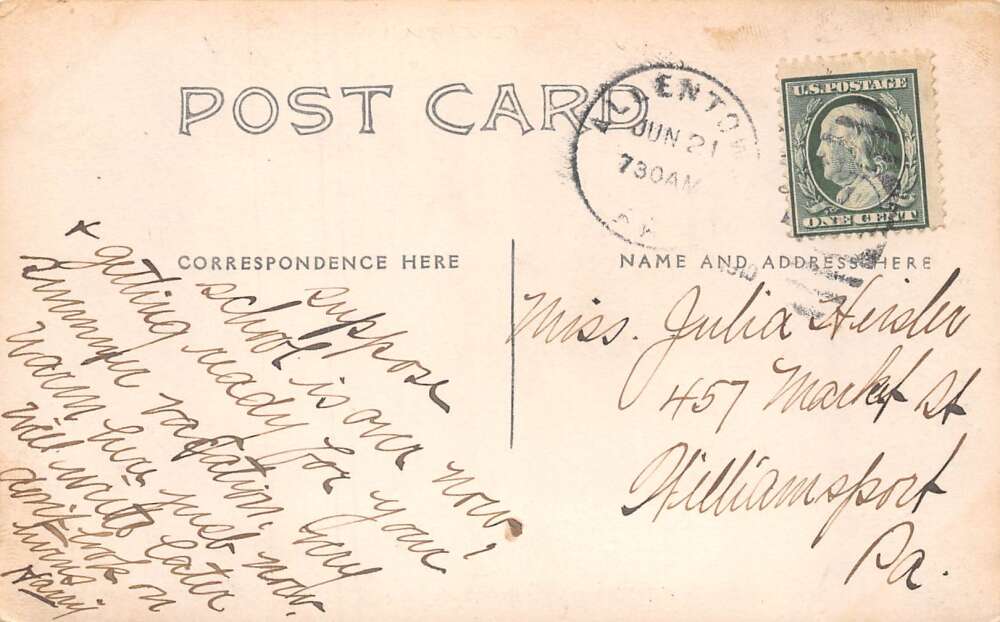 POST CARD
ALLENTOW
JUN 21
730AM
1910
U.S. POSTAGE
ONE CENT
CORRESPONDENCE HERE
NAME AND ADDRESS HERE
suppose
school is over now,
& getting ready for your
summer vacation. very
warm here just now.
will write later
don't look on
Harry
Miss. Julia Heisler
457 Market St
Williamsport
Pa.